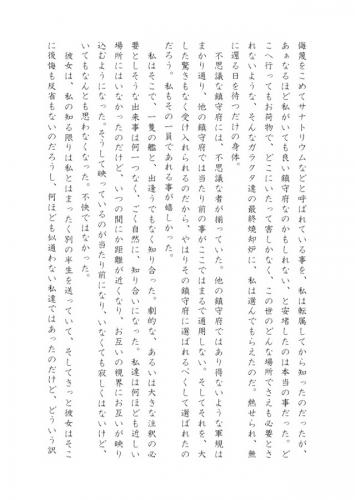 侮蔑をこめてサナトリウムなどと呼ばれている事を、私は転属してから知ったのだったが、
あぁなるほど私がいても良い鎮守府なのかもしれない、と安堵したのは本当の事だった。ど
こへ行ってもお荷物で、どこにいたって害しかなく、この世のどんな場所でさえも必要とさ
れないような、そんなガラクタ達の最終焼却炉に、私は選んでもらえたのだ。熱せられ、無
に還る日を待つだけの身体。
不思議な鎮守府には、不思議な者が揃っていた。他の鎮守府ではあり得ないような軍規は
まかり通り、他の鎮守府では当たり前の事がここではまるで通用しない。そしてそれを、大
した驚きもなく受け入れられるのだから、やはりその鎮守府に選ばれるべくして選ばれたの
だろう。私もその一員であれる事が嬉しかった。
私はそこで、一隻の艦と、出逢うでもなく知り合った。劇的な、あるいは大きな注釈の必
要としそうな出来事は何一つなく、ごく自然に、知り合いになった。私達は何ほども近しい
場所にはいなかったのだけど、いつの間にか距離が近くなり、お互いの視界にお互いが映り
込むようになった。そうして映っているのが当たり前になり、いなくても寂しくはないけど、
いてもなんとも思わなくなった。不快ではなかった。
彼女は、私の知る限りは私とはまったく別の半生を送っていて、そしてきっと彼女はそこ
に後悔も反省もないのだろうし、何ほども似通わない私達ではあったのだけど、どういう訳